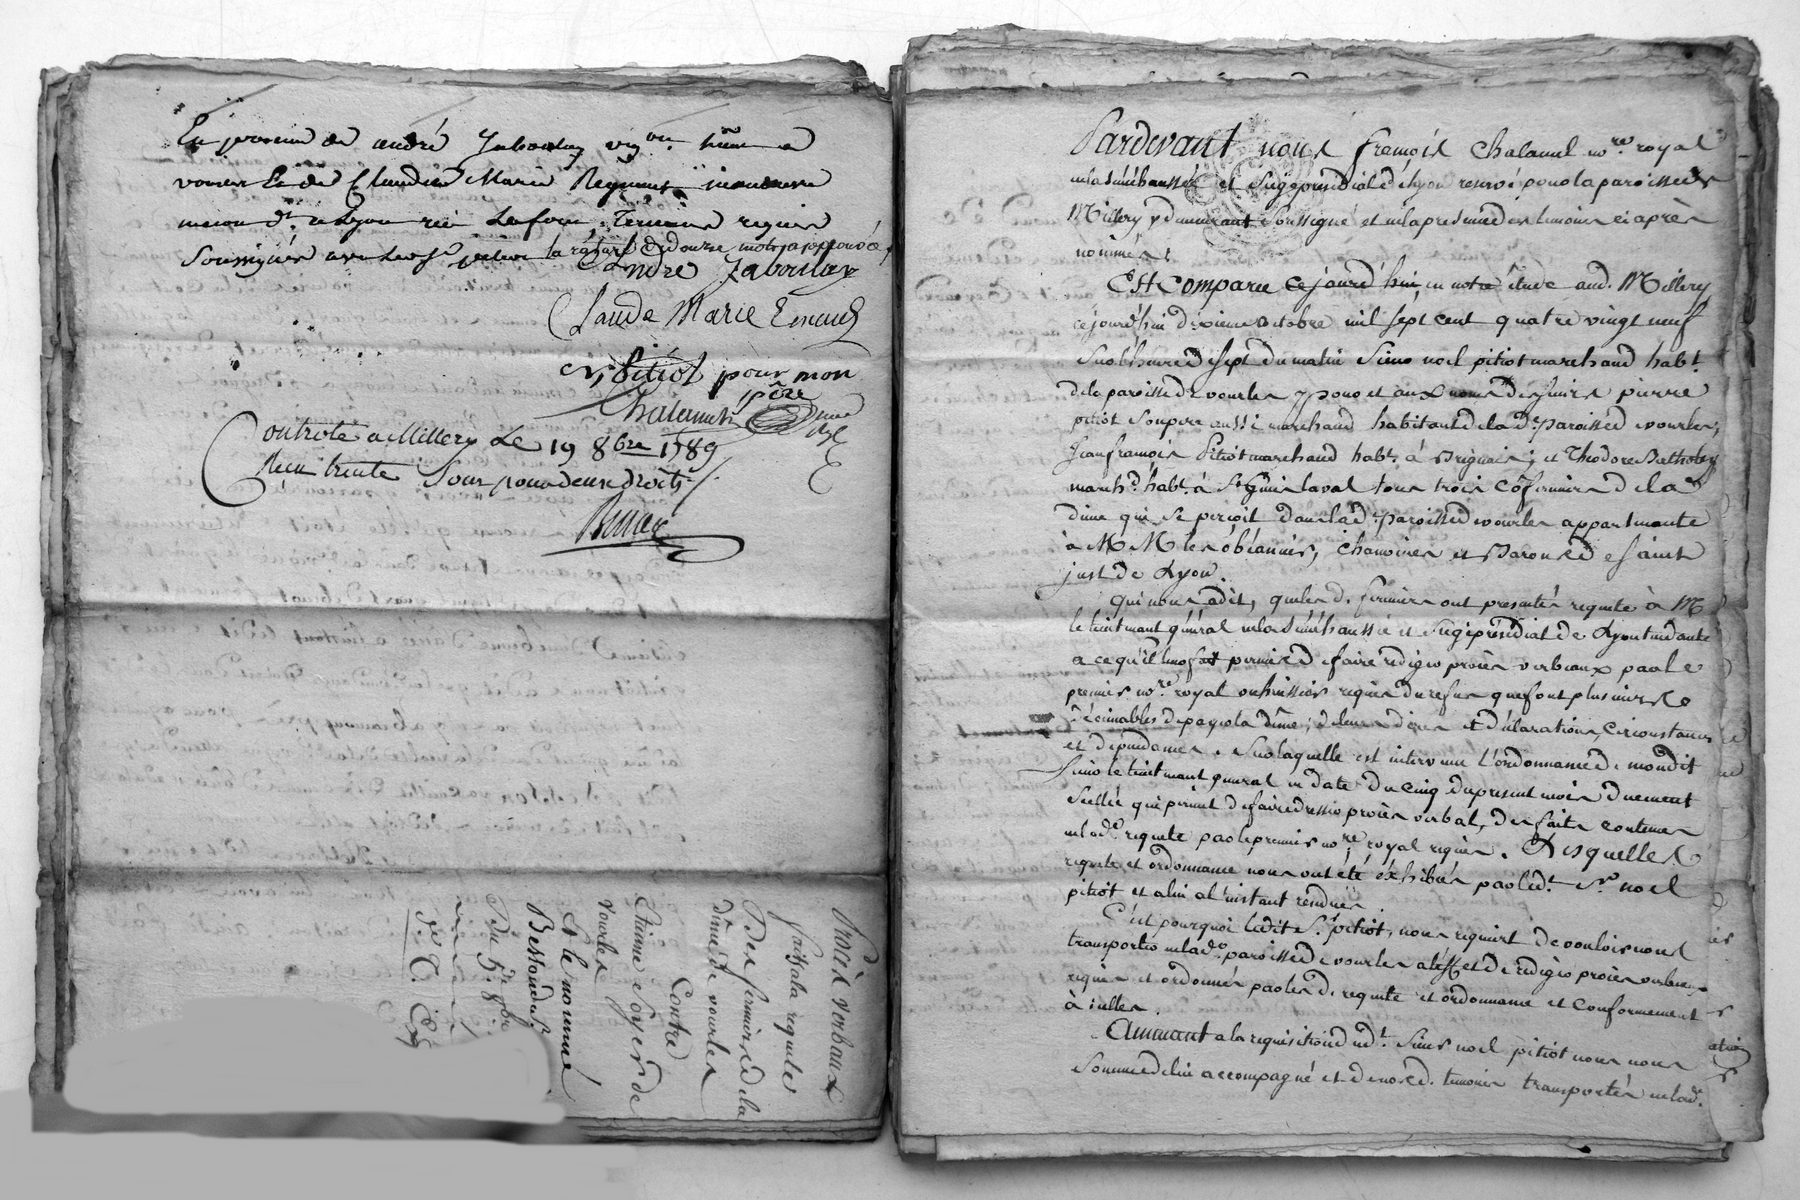 En presence de andré Jaboulay vign.on
voisin Et de Claude Marie
a Lyon Temoins requis
Soussignés avec led. Sr. la rature de douze mots approuvée,
Andre Jaboulay
Claude Marie
Pitiot pour mon
père
Chalamel
nore
royl
Controlé a Millery Le 19 8bre 1789
Recu trente Sous pour deux droits
Procès verbaux
faits a la requete
Des fermiers de la
dîme de vourles
Contre
Etienne Goyer de
vourles
Et le nommé
Du 5e 8bre
Pardevant nous françois Chalamel nore. royal
en la sénéchaussée et siège présidial de Lyon reservé pour la paroisse de
Millery y demeurant soussigné et en la presence des temoins ci après
nommés;
Est comparu ce jourd'hui en notre étude aud. Millery
ce jourd'hui dixieme octobre mil sept cent quatre vingt neuf
Sur l'heure de sept du matin Sieur noel pitiot marchand habt.
de la paroisse de vourles pour et aux noms de Sieurs pierre
pitiot son pere aussi marchand habitant de lad. paroisse de vourles,
Jean françois Pitiot marchand habt. à Brignais; et Theodore Betholey
march.d habt. à St. genis laval tous trois cofermiers de la
dîme qui se perçoit dans lad. paroisse de vourles appartenante
à M M les obéanciers, chanoines et Barons de Saint
just de Lyon.
Qui nous a dit, que lesd. fermiers ont presentés requete à M
le lieutenant général en la sénéchaussée et siège présidial de Lyon tendante
a ce qu'il leur fut permis de faire rédiger procès verbaux par le
premier nore. royal ou huissier requis du refus que font plusieurs
décimables de payer la dîme; de leurs dires et déclarations, circonstances
et dépendances. Sur laquelle est intervenu l'ordonnance de mondit
Sieur le lieutenant général en date du cinq du present mois duement
Scellée qui permet de faire dresser procès verbal, des faits contenus
en lade. requete par le premier nore. royal requis. Desquelles
requete et ordonnance nous ont été éxhibés par led.t Sr. noel
pitiot et a lui a l'instant rendues.
C'est pourquoi ledit Sr. pitiot, nous requiert de vouloir nous
transporter en lade. paroisse de vourles a l'effet de rédiger procès verbaux
requis et ordonnés par lesd. requete et ordonnance et conformement
à icelles.
Amenant a la requisition dud.t Sieur noel pitiot nous nous
Sommes de lui accompagné et de nosd. temoins transportés en lade.